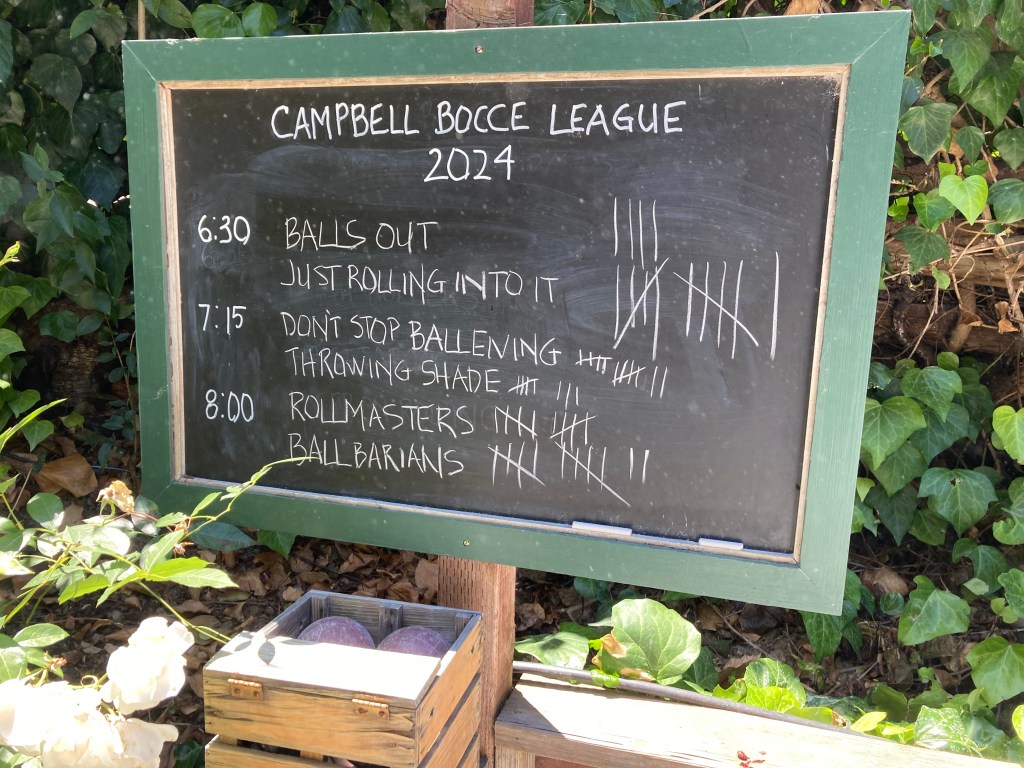 CAMPBELL BOCCE LEAGUE
2024
6:30 BALLS OUT
JUST ROLLING INTO IT
7:15 DON'T STOP BALLENING
THROWING SHADE
8:00 ROLLMASTERS
BALLBARIANS